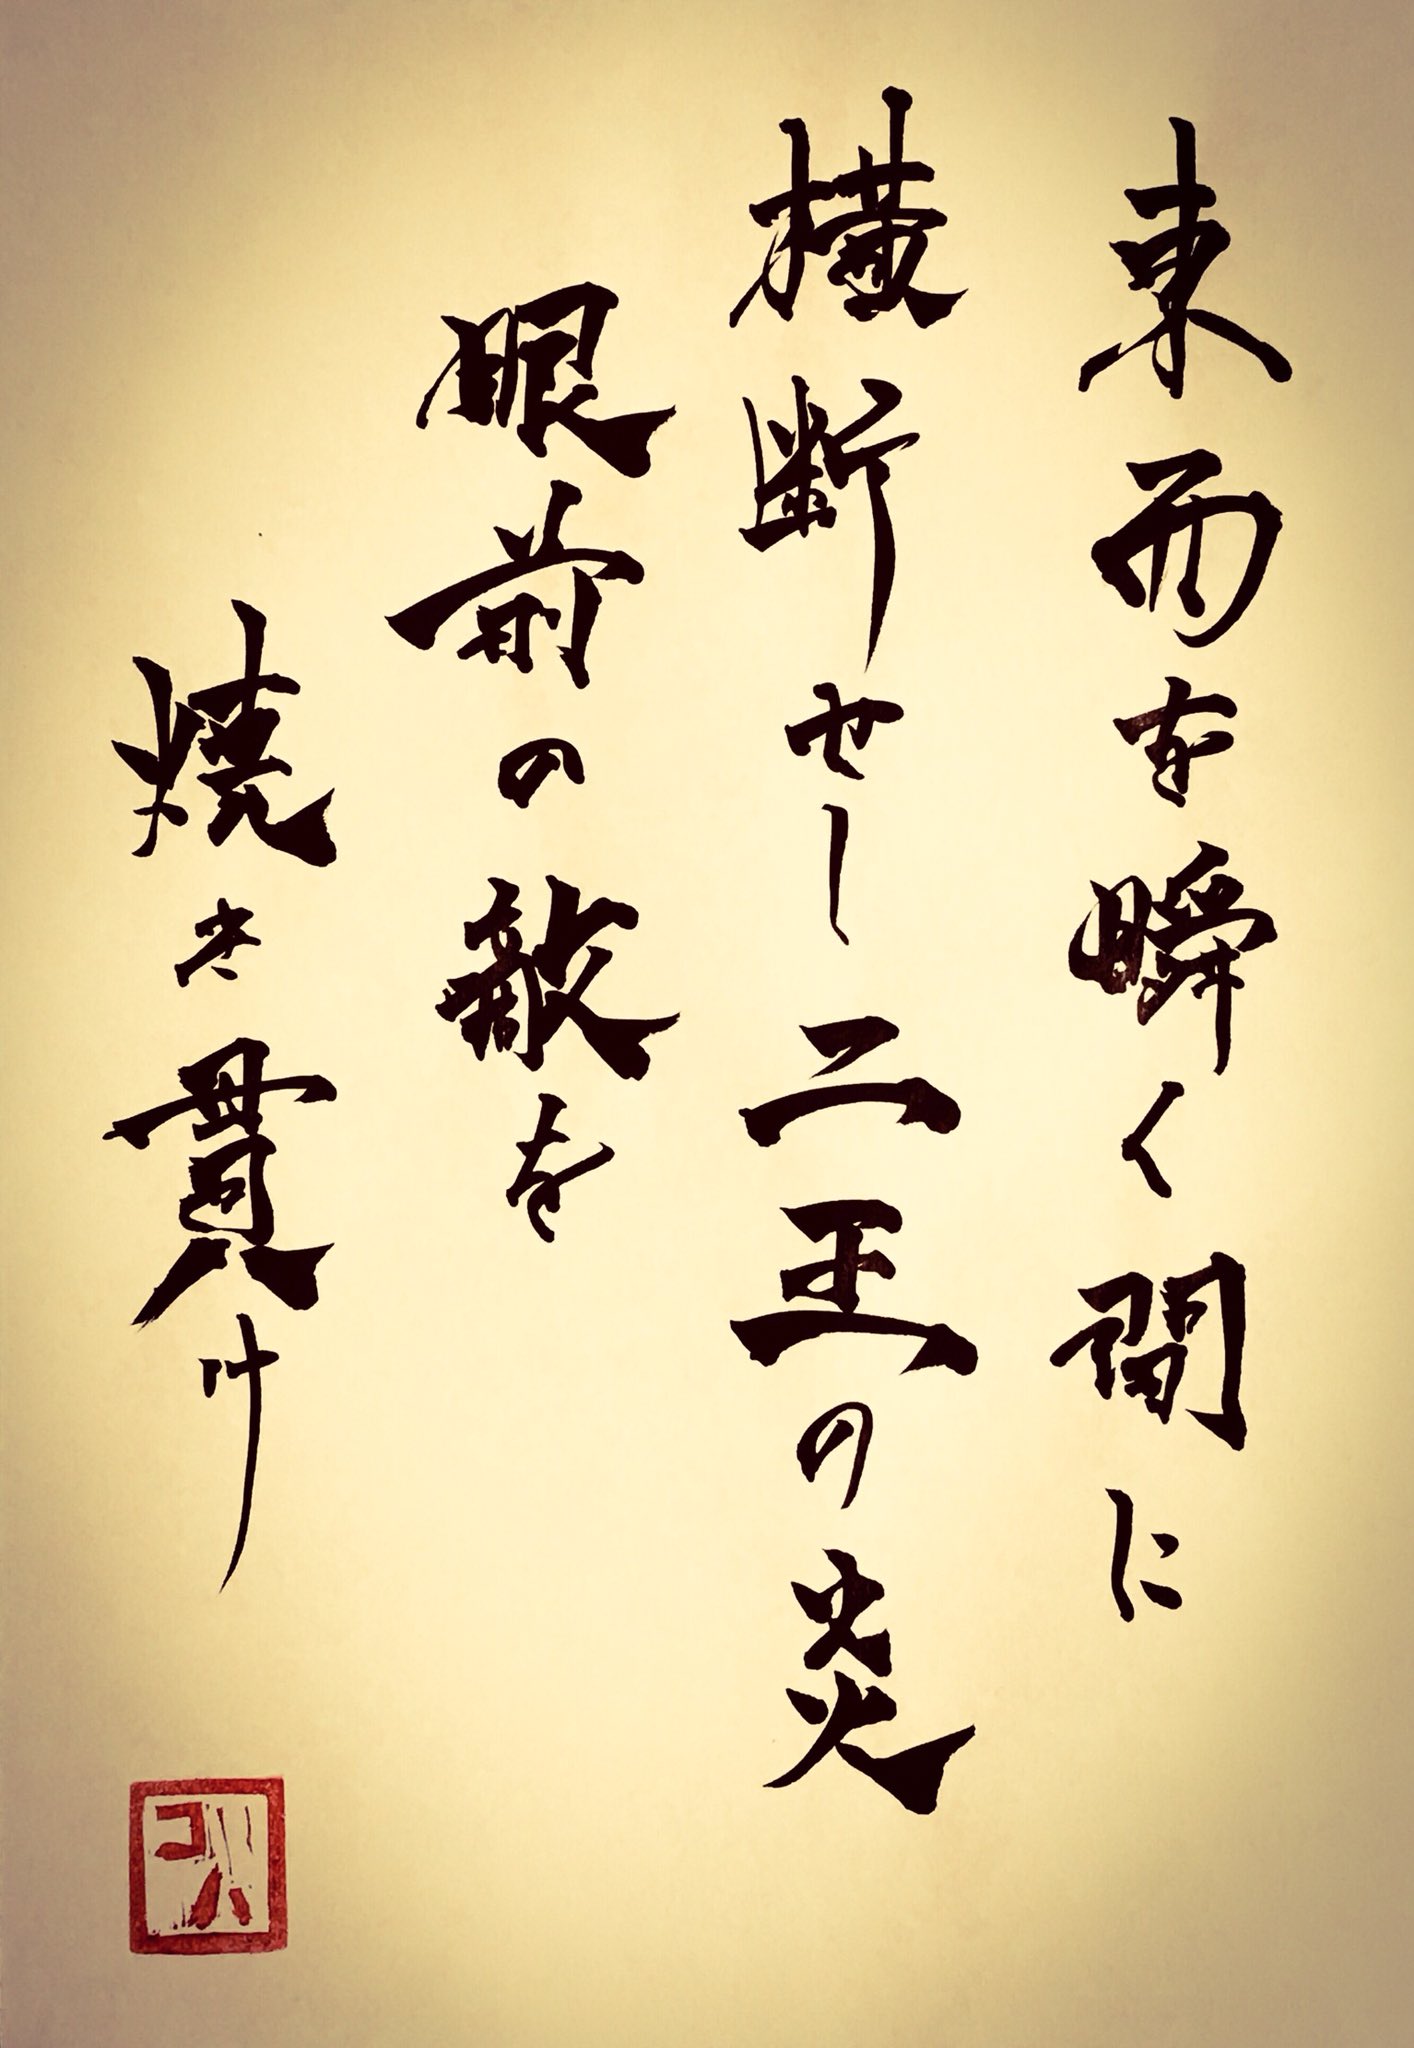 東西を瞬く間に
横断せし二王の炎
眼前の敵を
焼き貫け